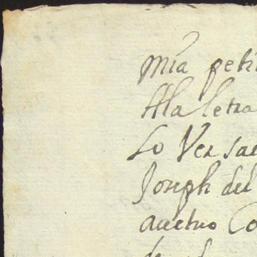 mia peti
Ala letra
Lo Ver sa
Joseph del
auctuo Co